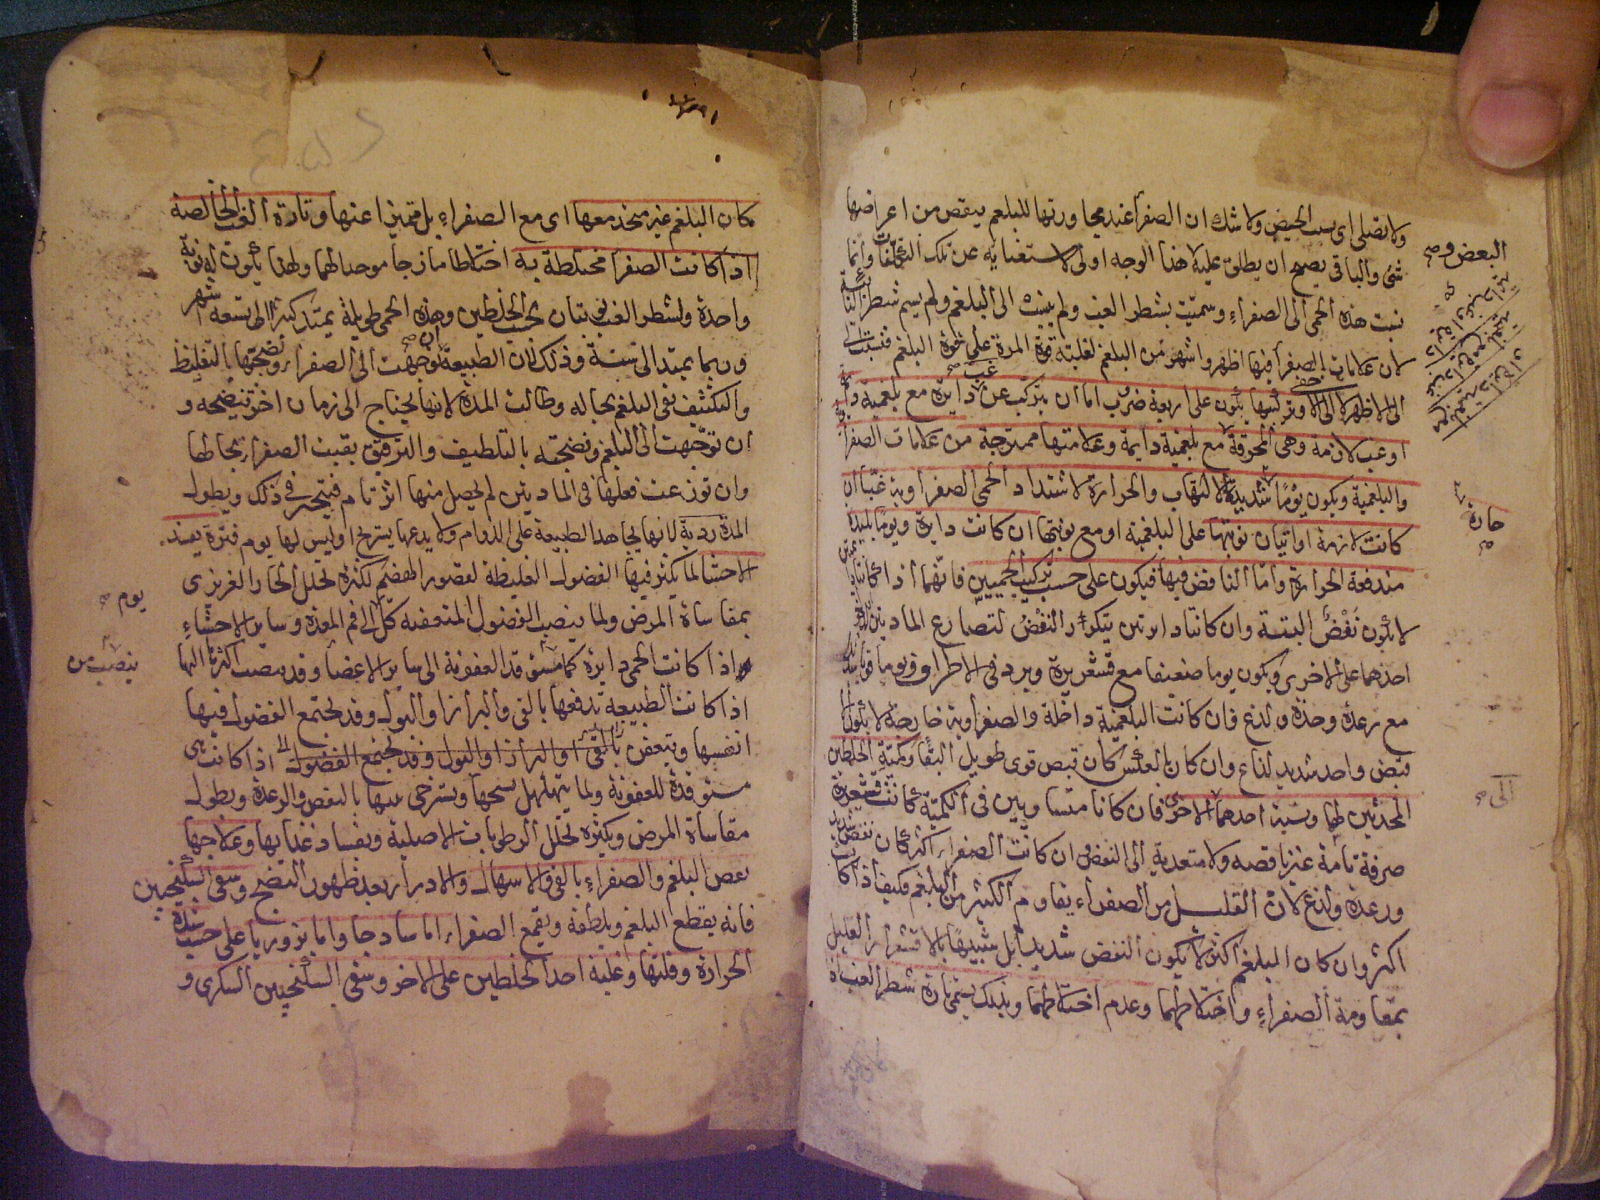 ولا تصلى اى بسبب الحيض ولا شك ان الصفرا عند مجاورتها للبلغم ينقص من اعراضها
شئ والباقى يصح ان يطلق عليه هذا الوجه اولى لاستغنايه عن تلك التكلفات وانما
نسبت هذه الحمى الى الصفراء وسميت بشطر الغب ولم ينسب الى البلغم ولم يسم شطر
لان علامات الصفرا فيها اظهر واشهر من البلغم لغلبة قوة المرة على قوة البلغم فنسبت
الى الاظهر لا الى الاخفى وتركيبها يكون على اربعة ضروب اما ان يتركب عن غب دايرة مع بلغمية
او غب لازمة وهى المحرقة مع بلغمية دايمة وعلامتها ممتزجة من علامات الصفرا
والبلغمية ويكون يوما شديدة الالتهاب والحرارة لاشتداد الحمى الصفراوية غبا ان
كانت لازمة او اتيان نوبتها على البلغمية او مع نوبتها ان كانت دايرة ويوما
مندفعة الحرارة واما النافض فيها فيكون على حسب تركيب الحميين فانهما اذا كانتا
لا يكون نفض البتة وان كانتا دايرتين يتكرر النفض لتصارع المادتين
احدهما على الاخرى ويكون يوما ضعيفا مع قشعريرة وبرد فى الاطراف ويوما قويا
مع رعدة وحدة ولذع فان كانت البلغمية داخلة والصفراوية خارجة لا يكون الا
نفض واحد شديد لذاع وان كان بالعكس كان نفض قوى طويل البقا وكمية الخلطين
المحدثين لها ونسبة احدهما الى الاخرى فان كانا متساويين فى الكمية كانت قشعريرة
صرفة تامة غير ناقصة ولا متعدية الى النفض وان كانت الصفراء اكثر كان نفض
ورعدة ولذع لان القليل من الصفراء يقاوم الكثير من البلغم فكيف اذا كانت
اكثر وان كان البلغم اكثر لا يكون النفض شديدا بل شبيها بالاقشعرار القليل
بمقاومة الصفراء واختلاطهما وعدم اختلاطهما وبذلك يسمى تارة شطر الغب اذا
البعض و صح
حارة صح
الى صح
كان البلغم غير متحد معها اى مع الصفراء بل متميزا عنها وتارة الغب الغير الخالصة
اذا كانت الصفرا مختلطة به اختلاطا مازجا موحدا لهما ولهذا يكون له نوبة
واحدة ولشطر الغب نوبتان بحسب الخلطين وهذه الحمى طويلة يمتد كثيرا الى تسعة اشهر
وربما يمتد الى سنة وذلك لان الطبيعة ان توجهت الى الصفراء ونضجتها بالتغليظ
والتكثيف بقى البلغم بحاله وطالت المدة لانها يحتاج الى زمان اخر تنضجه و
ان توجهت الى البلغم ونضجته بالتلطيف والترقيق بقيت الصفراء بحالها
وان توزعت فعلها فى المادتين لم يحصل منها اثر تام فيتحير فى ذلك ويطول
المدة ردية لانها يجاهد الطبيعة على الدوام ولا يدعها يستريح اوليس لها يوم فترة يفسد
الاحشا لما يكثر فيها الفضول الغليظة لقصور الهضم لكثرة تحلل الحار الغريزى
بمقاساة المرض ولما ينصب الفضول المتعفنة كل الى فم المعدة وساير الاحشاء
اذا كانت الحمى دايرة كما ستوقد العفونة الى ساير الاعضا وقد ينصب اكثرها اليها
اذا كانت الطبيعة تدفعها بالقى والبراز والبول وقد يجتمع الفضول فيها
انفسها ويتعفن بالقى او البراز او البول وقد يجتمع الفضول اذا كانت هى
مستوقدة للعفونة ولما يتهلهل نسجها ويسترخى عليها بالنفض والرعدة وبطول
مقاساة المرض وبكثرة تحلل الرطوبات الاصلية وبفساد غذايها وعلاجها
نفض البلغم والصفراء بالقى والاسهال والادرار بعد ظهور النضج وسقى السكنجبين
فانه يقطع البلغم ويلطفه ويقمع الصفراء اما ساذجا واما بزوريا على حسب شدة
الحرارة وقلتها وغلبة احد الخلطين على الاخر وسقى السكنجبين السكرى و
يوم صح
ينصب من